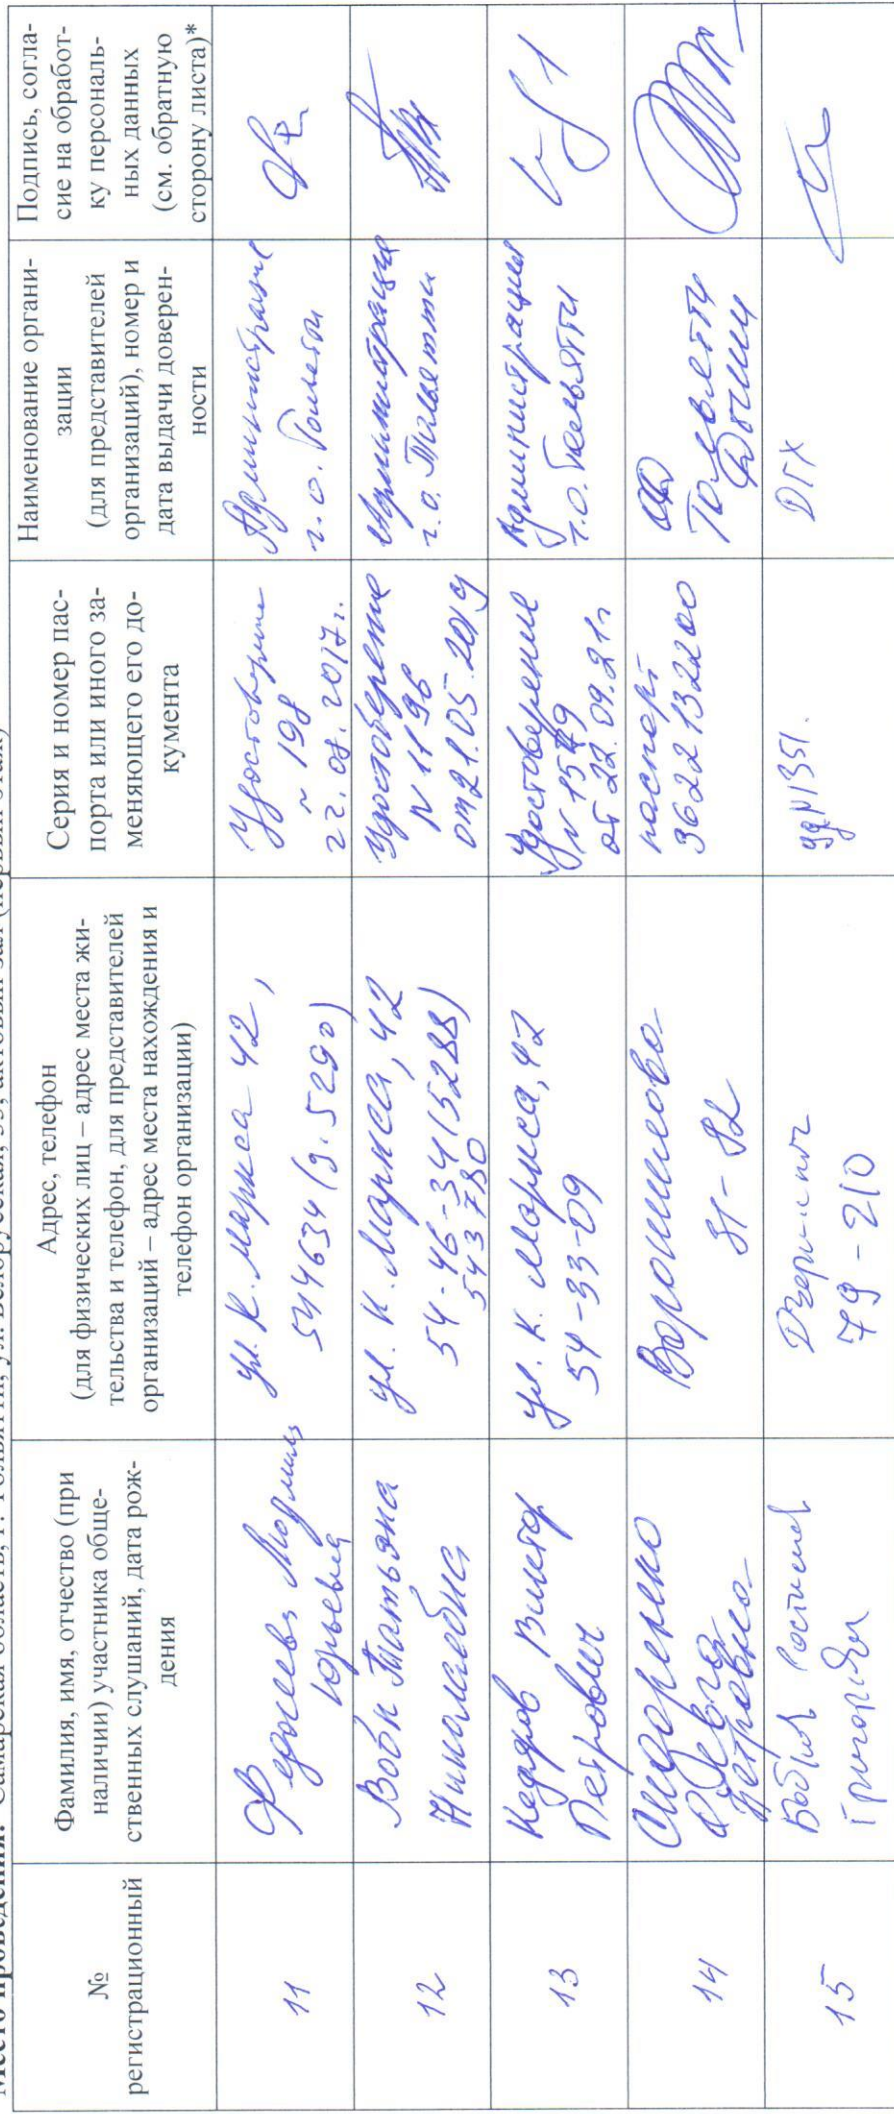 Место проведения: Самарская область, г. Тольятти, ул. Белорусская, 33, актовый зал (первый этаж)
№
регистрационный
Фамилия, имя, отчество (при
наличии) участника обще-
ственных слушаний, дата рож-
дения
Адрес, телефон
(для физических лиц – адрес места жи-
тельства и телефон, для представителей
организаций – адрес места нахождения и
телефон организации)
Серия и номер пас-
порта или иного за-
меняющего его до-
кумента
Наименование органи-
зации
(для представителей
организаций), номер и
дата выдачи доверен-
ности
Подпись, согла-
сие на обработ-
ку персональ-
ных данных
(см. обратную
сторону листа)*
11
Людмила
Юрьевна
ул. К. Маркса 42,
544634 (д. 5290)
Удостоверение
~ 198
22.08.2017г.
Администрация
г.о. Тольятти
12
Татьяна
Николаевна
ул. К. Маркса, 42
54-46-34 (5288)
543780
Удостоверение
N 1196
от 21.05.2019
Администрация
г.о. Тольятти
13
Кедяров Виктор
Петрович
ул. К. Маркса, 42
54-33-09
Удостоверение
N 1579
от 22.09.21г
Администрация
г.о. Тольятти
14
Сидоренко
Петровна
Ворошилова
31-82
паспорт
3622132200
Тольятти
15
Григорьевич
79-210
уд N1351.
ДГХ